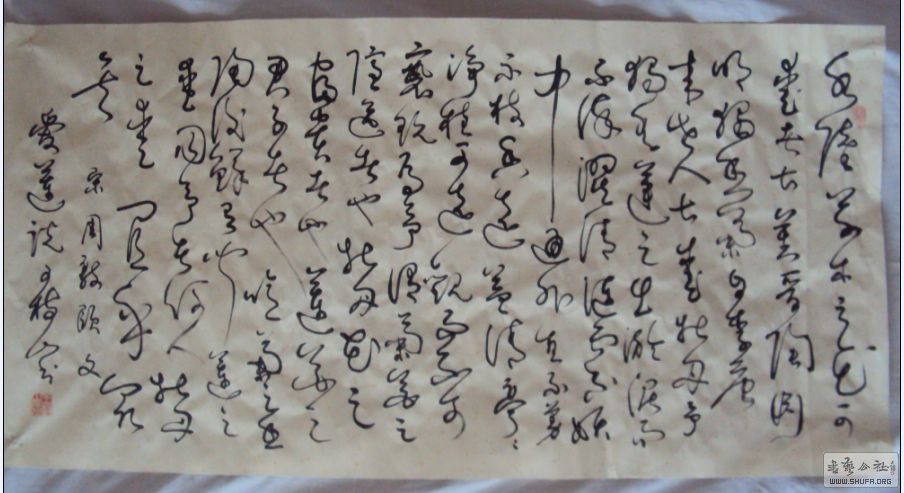 水陸草木之花可
愛者甚蕃晉陶淵
明獨愛菊自李唐
來世人甚愛牡丹予
獨愛蓮之出淤泥而
不染濯清漣而不妖
中通外直不蔓
不枝香遠益清亭亭
淨植可遠觀而不可
褻玩焉予謂菊花之
隱逸者也牡丹花之
富貴者也蓮花之
君子者也噫菊之愛
陶後鮮有聞蓮之
愛同予者何人牡丹
之愛宜乎眾
矣
宋周敦頤文
愛蓮說
WWW.SHUFA.ORG